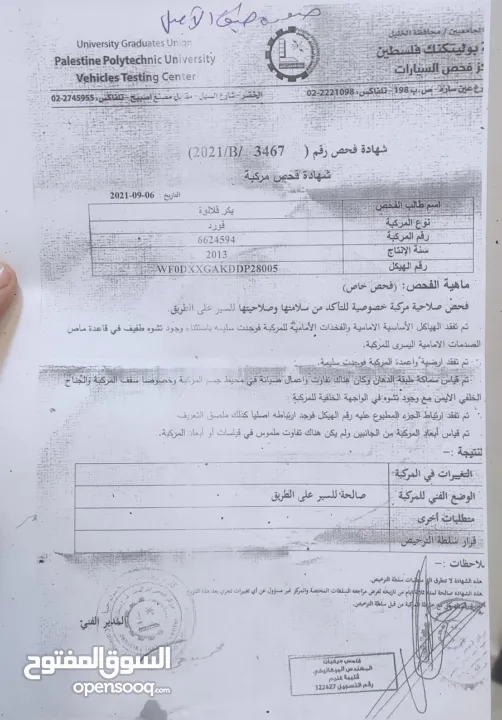 صورة طبق الأصل
University Graduates Union
Palestine Polytechnic University
Vehicles Testing Center
الجامعيين / محافظة الخليل
بوليتكنك فلسطين
ز فحص السيارات
ع عين سارة - ص.ب 198 - تلفاكس: 2221098-02
الخضر: شارع السيل - مقابل مصنع اصبيح - تلفاكس: 2745955-02
شهادة فحص رقم ( 3467 /2021/B)
شهادة فحص مركبة
التاريخ : 06-09-2021
اسم طالب الفحص بكر قلالوة
نوع المركبة فورد
رقم المركبة 6624594
سنة الإنتاج 2013
رقم الهيكل WF0DXXGAKDDP28005
ماهية الفحص: (فحص خاص)
فحص صلاحية مركبة خصوصية للتأكد من سلامتها وصلاحيتها للسير على الطريق.
تم تفقد الهياكل الأساسية الامامية والفخذات الأمامية للمركبة فوجدت سليمة باستثناء وجود تشوه طفيف في قاعدة ماص
الصدمات الامامية اليسرى للمركبة.
تم تفقد ارضية واعمدة المركبة فوجدت سليمة.
تم قياس سماكة طبقة الدهان وكان هناك تفاوت واعمال صيانة في محيط جسم المركبة وخصوصا سقف المركبة والجناح
الخلفي الأيمن مع وجود تشوه في الواجهة الخلفية للمركبة
تم تفقد ارتباط الجزء المطبوع عليه رقم الهيكل فوجد ارتباطه اصليا كذلك ملصق التعريف
تم قياس أبعاد المركبة من الجانبين ولم يكن هناك تفاوت ملموس في قياسات أو أبعاد المركبة.
لنتيجة :-
التغييرات في المركبة
الوضع الفني للمركبة صالحة للسير على الطريق
متطلبات أخرى
قرار سلطة الترخيص
لاحظات :-
هذه الشهادة لا تتطرق الى متطلبات سلطة الترخيص.
المدير الفني
المهندس الميكانيكي
رقم التسجيل 122427
السوق المفتوح
opensooq.com